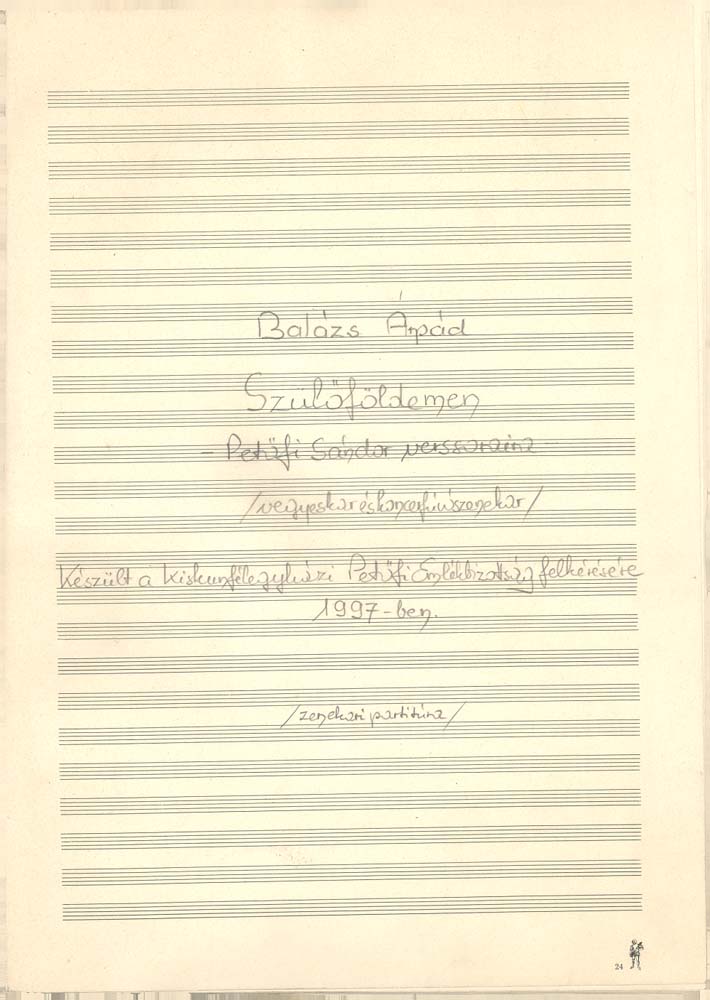 Balázs Árpád
Szülőföldemen
- Petőfi Sándor verssoraira -
/vegyeskar és koncertfúvószenekar/
Készült a Kiskunfélegyházi Petőfi Emlékbizottság felkérésére
1997-ben.
/zenekari partitúra/
24